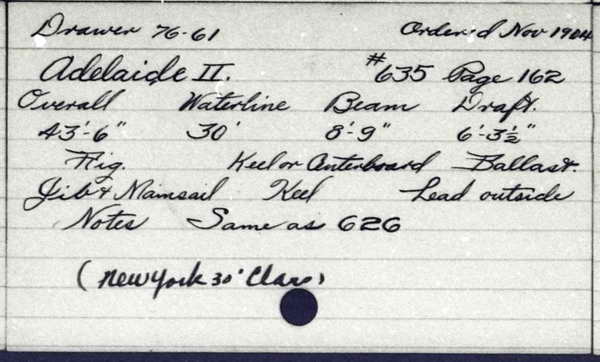 Drawer 76-61 Ordered Nov 1904
Adelaide II. #635 Page 162
Overall Waterline Beam Draft.
43'-6" 30' 8'-9" 6'-3½"
Rig. Keel or Centerboard Ballast.
Jib & Mainsail Keel Lead outside
Notes Same as 626
(New York 30' Class)